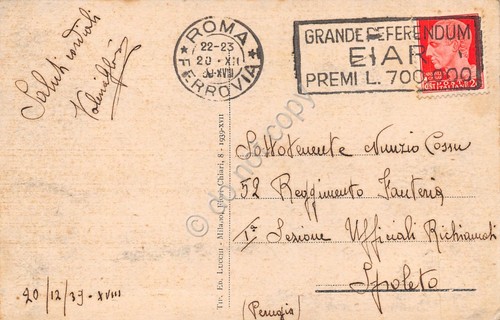 Saluti cordiali
ROMA
FERROVIA
22-23
20 · XII
XVIII
GRANDE REFERENDUM
EIAR
PREMI L. 700
Sottotenente Nunzio Cossu
52 Reggimento Fanteria
Iª Sezione Ufficiali Richiamati
Spoleto
(Perugia)
20/12/39-XVIII
Tip. Ed. Luccini - Milano, Fior Chiari, 8 - 1939-XVII
do not copy